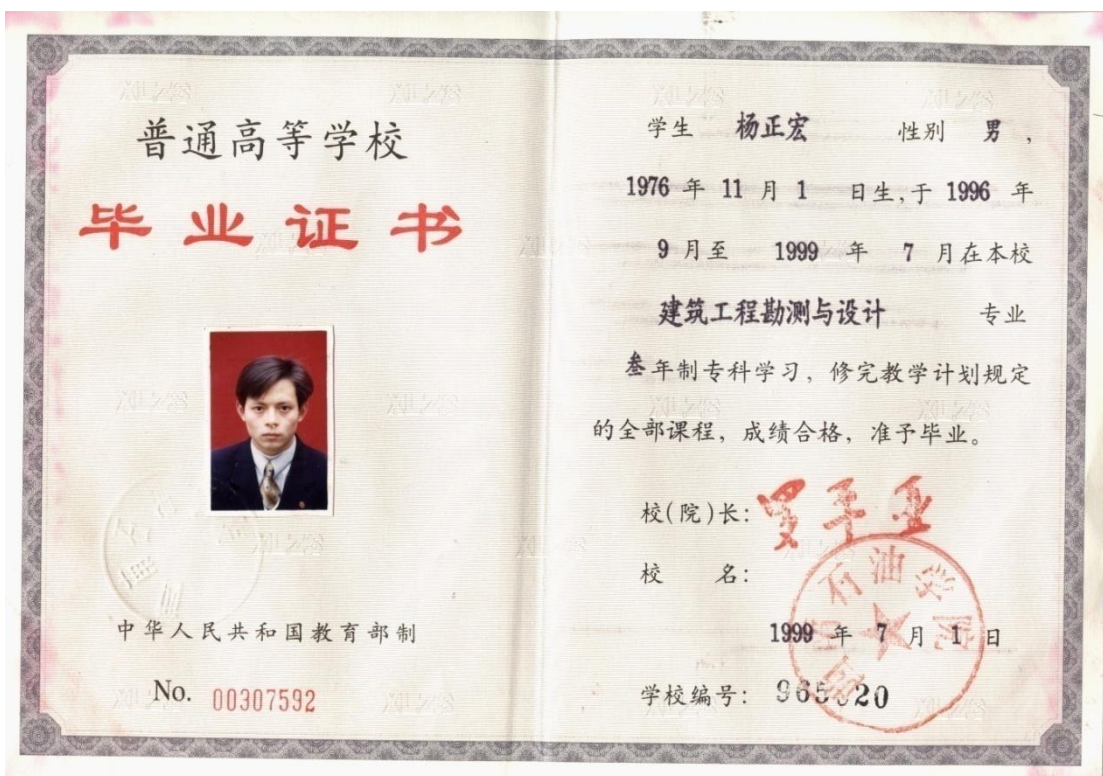 普通高等学校
毕业证书
中华人民共和国教育部制
No. 00307592
学生 杨正宏 性别 男,
1976 年 11 月 1 日生,于 1996 年
9 月至 1999 年 7 月在本校
建筑工程勘测与设计 专业
叁年制专科学习,修完教学计划规定
的全部课程,成绩合格,准予毕业。
校(院)长: 罗平亚
校 名:
西南石油学院
1999 年 7 月 1 日
学校编号: